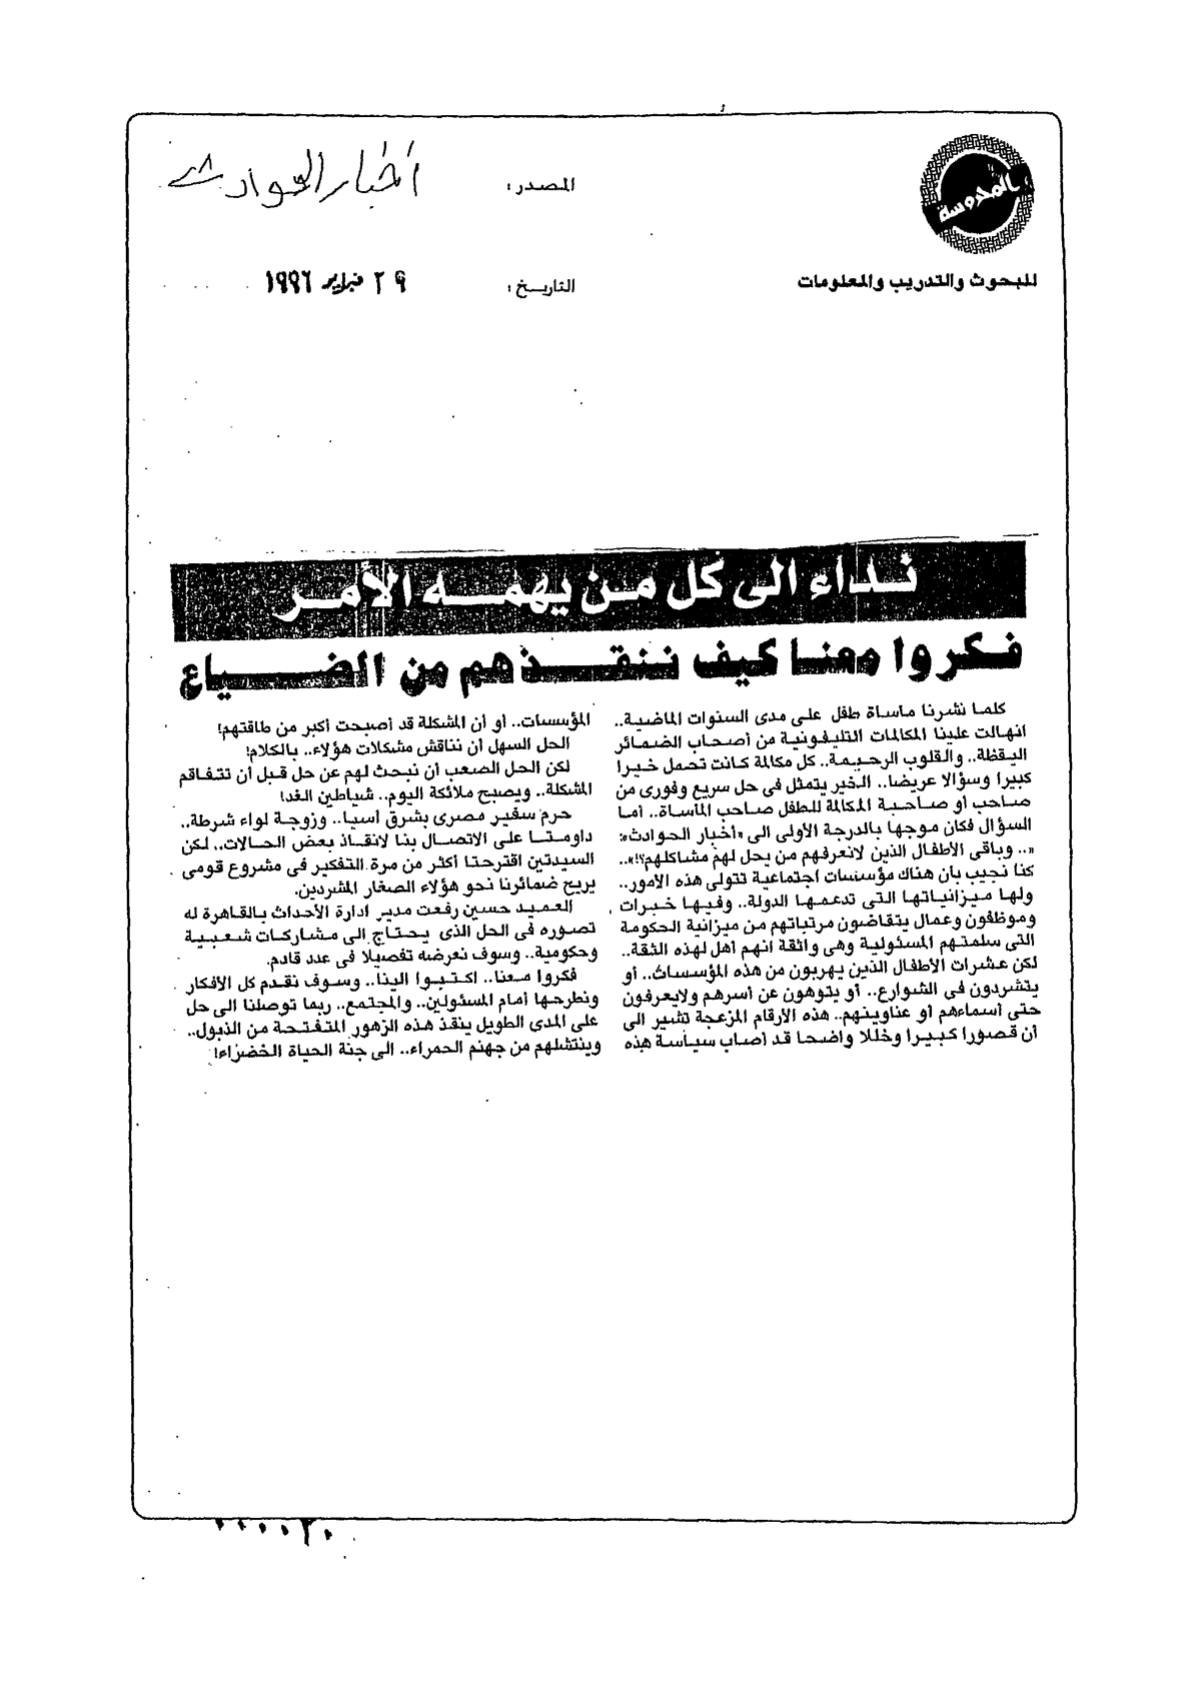 المحروسة
للبحوث والتدريب والمعلومات
المصدر: أخبار الحوادث
التاريخ: ٢٩ فبراير ١٩٩٦
نداء الى كل من يهمه الأمر
فكروا معنا كيف ننقذهم من الضياع
كلما نشرنا مأساة طفل على مدى السنوات الماضية..
انهالت علينا المكالمات التليفونية من أصحاب الضمائر
اليقظة.. والقلوب الرحيمة.. كل مكالمة كانت تحمل خيرا
كبيرا وسؤالا عريضا.. الخير يتمثل فى حل سريع وفورى من
صاحب أو صاحبة المكالمة للطفل صاحب المأساة.. أما
السؤال فكان موجها بالدرجة الأولى الى «أخبار الحوادث»:
«.. وباقى الأطفال الذين لانعرفهم من يحل لهم مشاكلهم؟!»..
كنا نجيب بأن هناك مؤسسات اجتماعية تتولى هذه الأمور..
ولها ميزانياتها التى تدعمها الدولة.. وفيها خبرات
وموظفون وعمال يتقاضون مرتباتهم من ميزانية الحكومة
التى سلمتهم المسئولية وهى واثقة انهم أهل لهذه الثقة..
لكن عشرات الأطفال الذين يهربون من هذه المؤسسات.. أو
يتشردون فى الشوارع.. أو يتوهون عن أسرهم ولايعرفون
حتى أسماءهم أو عناوينهم.. هذه الأرقام المزعجة تشير الى
أن قصورا كبيرا وخللا واضحا قد أصاب سياسة هذه
المؤسسات.. أو أن المشكلة قد أصبحت أكبر من طاقتهم!
الحل السهل أن نناقش مشكلات هؤلاء.. بالكلام!
لكن الحل الصعب أن نبحث لهم عن حل قبل أن تتفاقم
المشكلة.. ويصبح ملائكة اليوم.. شياطين الغد!
حرم سفير مصرى بشرق أسيا.. وزوجة لواء شرطة..
داومتا على الاتصال بنا لانقاذ بعض الحالات.. لكن
السيدتين اقترحتا أكثر من مرة التفكير فى مشروع قومى
يريح ضمائرنا نحو هؤلاء الصغار المشردين.
العميد حسين رفعت مدير ادارة الأحداث بالقاهرة له
تصوره فى الحل الذى يحتاج الى مشاركات شعبية
وحكومية.. وسوف نعرضه تفصيلا فى عدد قادم.
فكروا معنا.. اكتبوا الينا.. وسوف نقدم كل الأفكار
ونطرحها أمام المسئولين.. والمجتمع.. ربما توصلنا الى حل
على المدى الطويل ينقذ هذه الزهور المتفتحة من الذبول..
وينتشلهم من جهنم الحمراء.. الى جنة الحياة الخضراء!